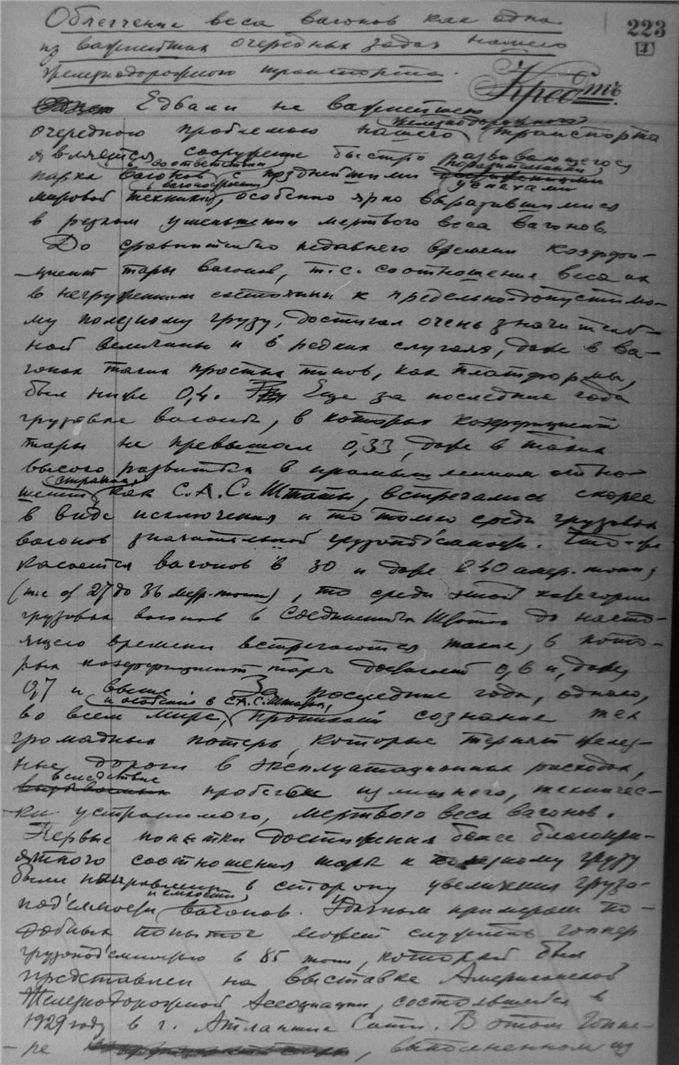 Облегчение веса вагонов как одна
223
из важнейших очередных задач нашего
1
железнодорожного транспорта.
Едва ли не важнейшею
железнодорожного
очередною проблемою нашего транспорта
является сооружение быстро развивающегося
в соответствии поразительными
парка вагонов с позднейшими
в вагоностроении успехами
мировой техники, особенно ярко выразившимися
в резком уменьшении мертвого веса вагонов.
До сравнительно недавнего времени коэффи-
циент тары вагонов, т.е. соотношение веса их
в негруженом состоянии к предельно-допустимо-
му полезному грузу, достигал очень значитель-
ной величины и в редких случаях, даже в ва-
гонах таких простых типов, как платформы,
был ниже 0,4. Еще за последние года
грузовые вагоны, в которых коэффициент
тары не превышал 0,33, даже в таких
высоко развитых в промышленном отно-
странах
шении как С.А.С.Штаты, встречались скорее
в виде исключения и то только среди грузовых
вагонов значительной грузопод'емности. Что-же
касается вагонов в 30 и даже в 40 амер. тонн,
(т.е. от 27 до 36 метр. тонн), то среди этой категории
грузовых вагонов в Соединенных Штатах до насто-
ящего времени встречаются такие, в кото-
рых коэффициент тары достигает 0,6 и, даже,
0,7 и выше. За последние года, однако,
и особенно в С.А.С.Штатах,
во всем мире, проникает сознание тех
громадных потерь, которые терпят желез-
ные дороги в эксплуатационных расходах,
вследствие
пробегов излишнего, техничес-
ки устранимого, мертвого веса вагонов.
Первые попытки достижения более благопри-
ятного соотношения тары к полезному грузу
были направлены в сторону увеличения грузо-
и емкости
под'емности вагонов. Удачным примером по-
добных попыток может служить гоппер
грузопод'емностью в 85 тонн, который был
представлен на выставке Американской
Железнодорожной Ассоциации, состоявшейся в
1929 году в г. Атлантик Сити. В этом гоппе-
-ре, выполненном из